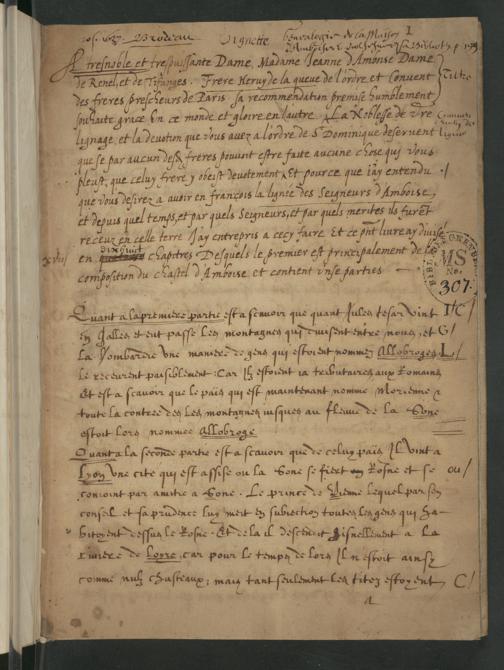 Brodeau Vignette Genealogie de la Maison
A tresnoble et trespuissante Dame, Madame Jeanne d'Amboise Dame
de Renel, et de Tifanges. Frere Heruy de la queue de l'ordre et Convent
Tiltre
des freres prescheurs de Paris sa recommendation premise humblement
souhaite grace en ce monde et gloire en l'autre. La Noblesse de vre
lignage, et la devotion que vous avez a l'ordre de S. Dominique deservent
que se par aucun des freres pouvoit estre faite aucune chose qui vous
pleust, que celuy frere y obeist devotement, Et pource que j'ay entendu
que vous desirez a avoir en françois la lignee des Seigneurs d'Amboise,
et depuis quel temps, et par quels Seigneurs, et par quels merites ils furēt
receuz en celle terre J'ay entrepris a cecy faire Et ce pnt livre ay divisé
dixhuit
en chapitres Desquels le premier est principalement de la
composition du chastel d'Amboise et contient unse parties
MS
No.
307.
Quant a la premiere partie est a scavoir que quant Jules Cesar vint
en Galles, et eut passé les montagnes qui divisent entre nous, et G/
la Lombardie une maniere de gens qui estoient nommez Allobroges L/
le receurent paisiblement: Car ilz estoient ia tributaires aux Romains
Et est a scavoir que le pais qui est maintenant nommé Morienne &
toute la contree des les montagnes iusques au fleuve de la Sone
estoit lors nommee Allobroge
Quant a la seconde partie est a scavoir que de celuy pais Il vint a
Lyon une cité qui est assise ou la Sone se fiert Rosne et se ou/
conioint par amitié a Sone. Le prince de Vienne lequel par son
conseil et sa prudence luy mert en subiection toutes les gens qui ha-
bitoyent dessus le Rosne. Et de la il descendit isnellement a la
riviere de Loyre, car pour le temps de lors Il n'estoit ainsy
comme nulz chasteaux; mais tant seulement les citez estoyent C/